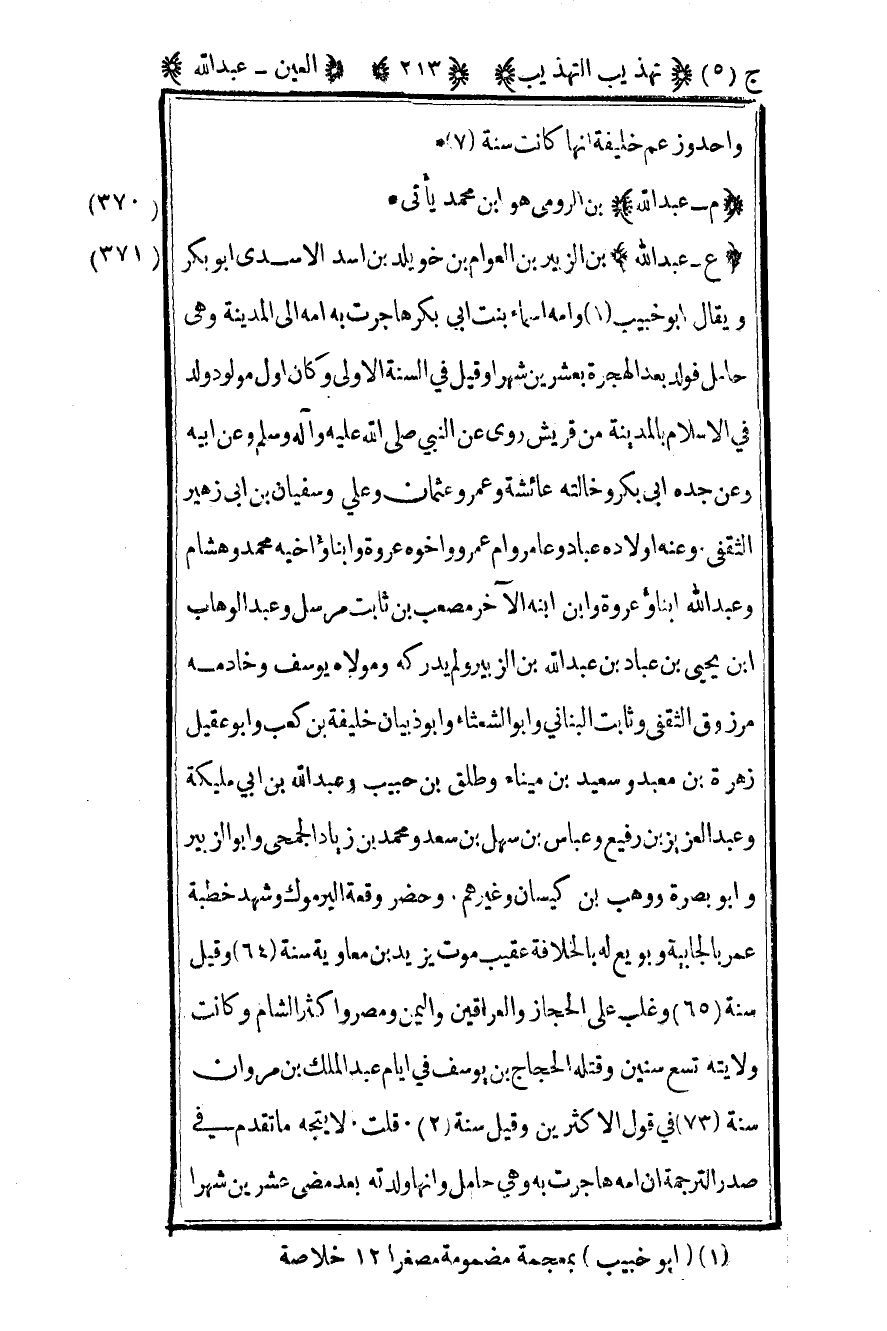 ج (٥) ﴿ تهذيب التهذيب ﴾ ﴿ ٢١٣ ﴾ ﴿ العين ـ عبدالله ﴾
واحدوزعم خليفة انها كانت سنة (٧)*
﴿ م ـ عبدالله ﴾ بن الرومى هو ابن محمد يأتى * (٣٧٠)
﴿ ع ـ عبدالله ﴾ بن الزبير بن العوام بن خويلد بن اسد الاسدى ابو بكر (٣٧١)
و يقال ابو خبيب (١) وامه اسماء بنت ابي بكر هاجرت به امه الى المدينة وهى
حامل فولد بعد الهجرة بعشرين شهرا وقيل في السنة الاولى وكان اول مولود ولد
في الاسلام بالمدينة من قريش روى عن النبي صلى الله عليه وآله وسلم وعن ابيه
وعن جده ابى بكر وخالته عائشة وعمر وعثمان وعلي وسفيان بن ابى زهير
الثقفى . وعنه اولاده عباد وعامر وام عمرو واخوه عروة وابناؤ اخيه محمد وهشام
وعبدالله ابناؤ عروة وابن ابنه الآخر مصعب بن ثابت مرسل وعبد الوهاب
ابن يحيى بن عباد بن عبدالله بن الزبير ولم يدركه ومولاه يوسف وخادمه
مرزوق الثقفى وثابت البناني وابو الشعثاء وابو ذبيان خليفة بن كعب وابو عقيل
زهرة بن معبد و سعيد بن ميناء وطلق بن حبيب وعبدالله بن ابي مليكة
وعبد العزيز بن رفيع وعباس بن سهل بن سعد ومحمد بن زياد الجمحى وابو الزبير
و ابو بصرة ووهب بن كيسان وغيرهم . وحضر وقعة اليرموك وشهد خطبة
عمر بالجابية و بويع له بالخلافة عقيب موت يزيد بن معاوية سنة (٦٤) وقيل
سنة (٦٥) وغلب على الحجاز والعراقين واليمن ومصر واكثر الشام وكانت
ولايته تسع سنين وقتله الحجاج بن يوسف في ايام عبد الملك بن مروان
سنة (٧٣) في قول الاكثرين وقيل سنة (٢) . قلت . لا يتجه ما تقدم في
صدر الترجمة ان امه هاجرت به وهي حامل وانها ولدته بعد مضى عشرين شهرا
(١) ( ابو خبيب ) بمعجمة مضمومة مصغرا ١٢ خلاصة